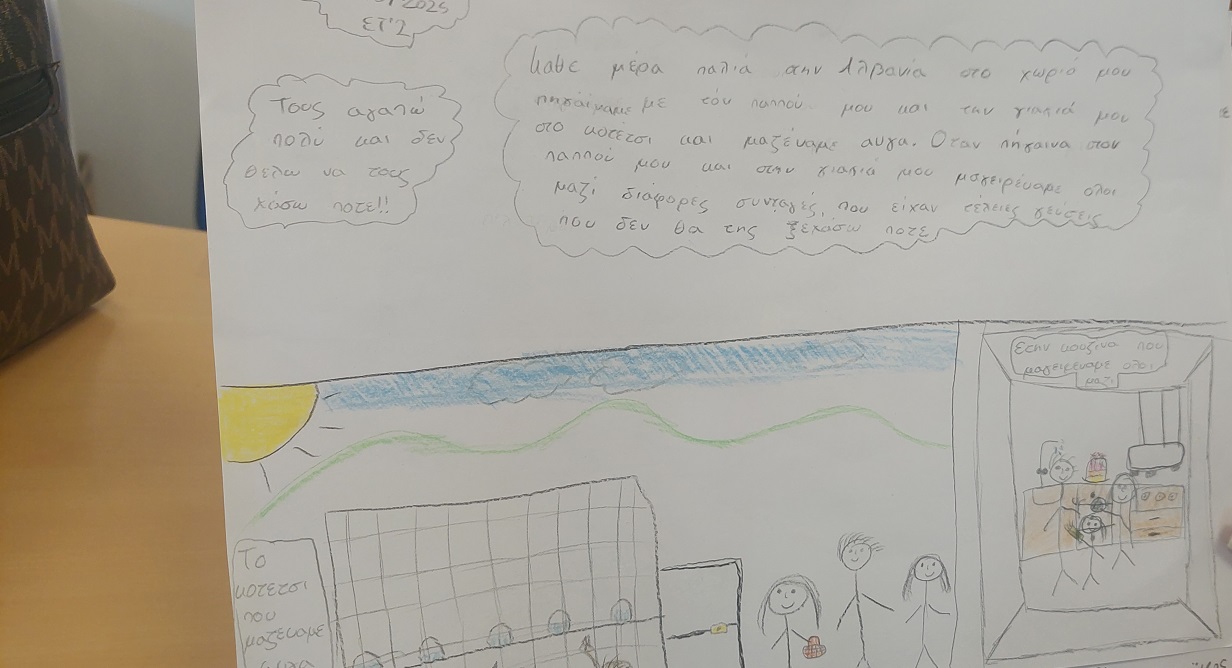 2025
ΣΤ'2
Τους αγαπώ
πολύ και δεν
θελω να τους
χάσω ποτε!!
Καθε μέρα παλιά στην Αλβανία στο χωριό μου
πηγαίναμε με τον παππού μου και την γιαγιά μου
στο κοτέτσι και μαζέναμε αυγα. Οταν πήγαινα στον
παππού μου και στην γιαγιά μου μαγειρέναμε ολοι
μαζί διάφορες συνταγές, που είχαν τέλειες γεύσεις
που δεν θα της ξεχάσω ποτε
Στην κουζινα που
μαγειρευαμε ολοι
μαζι
Το
κοτετσι
που
μαζευαμε
αυγα